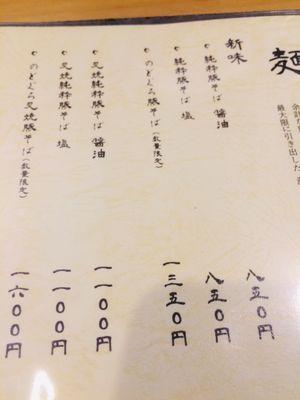 麺
余計な
最大限に引き出した
新味
純粋豚そば 醤油 八五〇円
純粋豚そば 塩 八五〇円
のどぐろ豚そば(数量限定) 一三五〇円
叉焼純粋豚そば 醤油 一一〇〇円
叉焼純粋豚そば 塩 一一〇〇円
のどぐろ叉焼豚そば(数量限定) 一六〇〇円